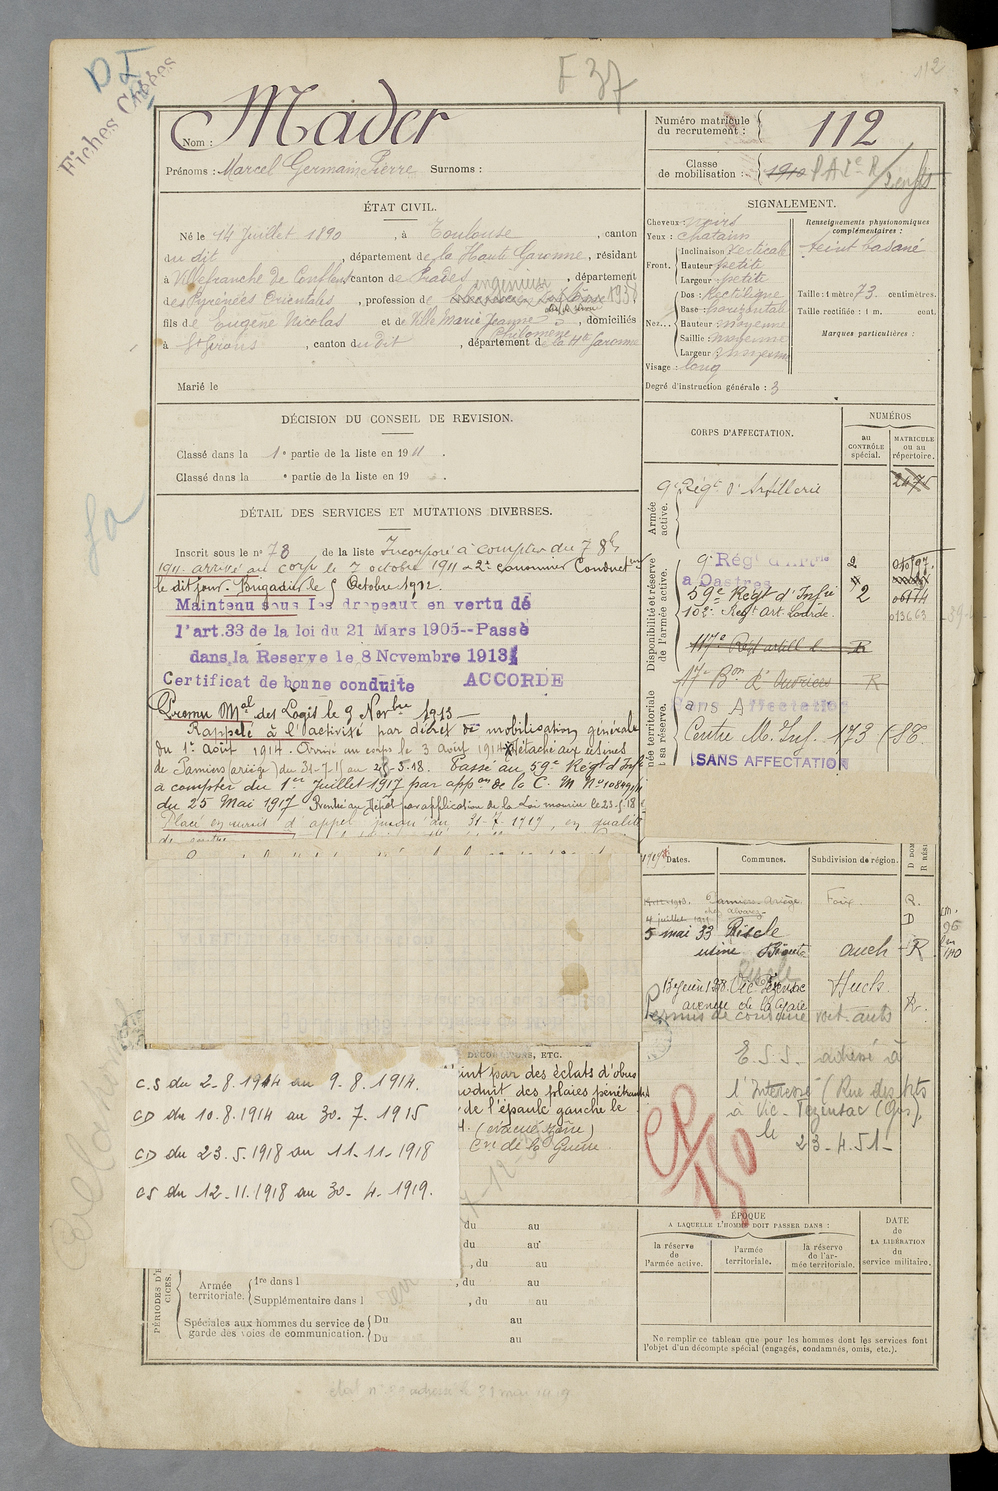 F 37
112
DI
Fiches
Nom : Mader
Prénoms : Marcel Germain Pierre Surnoms :
Numéro matricule du recrutement : 112
Classe de mobilisation : 1910
ÉTAT CIVIL.
Né le 14 Juillet 1890, à Toulouse, canton
du dit, département de la Haute Garonne, résidant
à Villefranche de Conflent canton de Prades, département
des Pyrénées Orientales, profession de ingénieur
fils de Eugène Nicolas et de Ville Marie Jeanne Philomène, domiciliés
à St Girons, canton du dit, département de la Hte Garonne
Marié le
SIGNALEMENT.
Cheveux : noirs
Yeux : chatain
Front. Inclinaison Verticale
Hauteur petite
Largeur petite
Nez... Dos : Rectiligne
Base : horizontale
Hauteur : moyenne
Saillie : moyenne
Largeur : moyenne
Visage : long
Degré d'instruction générale : 3
Renseignements physionomiques complémentaires :
teint basané
Taille : 1 mètre 73 centimètres.
Taille rectifiée : 1 m. cent.
Marques particulières :
DÉCISION DU CONSEIL DE REVISION.
Classé dans la 1e partie de la liste en 1911.
Classé dans la e partie de la liste en 19
DÉTAIL DES SERVICES ET MUTATIONS DIVERSES.
Inscrit sous le n° 73 de la liste Incorporé à compter du 7 8bre
1911. arrivé au corps le 7 octobre 1911 2e canonnier Conducteur
le dit jour. Brigadier le 5 Octobre 1912.
Maintenu sous les drapeaux en vertu de
l'art.33 de la loi du 21 Mars 1905--Passé
dans la Reserve le 8 Novembre 1913
Certificat de bonne conduite ACCORDE
Promu Mal des Logis le 9 Novbre 1913
Rappelé à l'activité par décret de mobilisation générale
du 1er août 1914. Arrivé au corps le 3 août 1914 Détaché aux usines
de Pamiers (ariège) du 31-7-15 au 23-5-18. Passé au 59e Régt d'Infie
à compter du 1er Juillet 1917 par appon de la C. M. No
du 25 Mai 1917 Rentré au Dépôt par application de la Loi mourier le 23-5-18
Placé en sursis d'appel jusqu'au 31-7-1917, en qualité
CORPS D'AFFECTATION.
NUMÉROS
au CONTRÔLE spécial.
MATRICULE ou au répertoire.
Armée active.
9e Régt d'Artillerie 2475
Disponibilité et réserve de l'armée active.
9e Régt d'Artie 2
à Castres
59e Régt d'Infie 2
102e Regt Art. Lourde. 013663
117e Régt artill l R
17e Bon d'Ouvriers R
Sans Affectation
Centre M. Inf. 173
SANS AFFECTATION
Dates. Communes. Subdivision de région.
Pamiers Ariège Foix R.
4 juillet chez Alvarez D
5 mai 33 Riscle
usine Auch R
Vic Fezensac Auch
avenue de la Gare R.
Permis de conduire voit. auto
E.S.S. adressé à
à Vic-Fezensac (Gers),
le 23-4-51-
CP
150
DÉCORATIONS, ETC.
par des éclats d'obus
produit des plaies pénétrantes
de l'épaule gauche le
Cne de la Guerre
C.S du 2-8.1914 au 9-8.1914.
CD du 10.8.1914 au 30.7.1915
CD du 23.5.1918 au 11-11-1918
CS du 12-11.1918 au 30-4-1919.
du au
du au
, du au
du au
, du au
Armée territoriale. 1re dans l
Supplémentaire dans l
Spéciales aux hommes du service de garde des voies de communication. Du au
Du au
ÉPOQUE
A LAQUELLE L'HOMME DOIT PASSER DANS :
la réserve de l'armée active.
l'armée territoriale.
la réserve de l'armée territoriale.
DATE de LA LIBÉRATION du service militaire.
Ne remplir ce tableau que pour les hommes dont les services font
l'objet d'un décompte spécial (engagés, condamnés, omis, etc.).